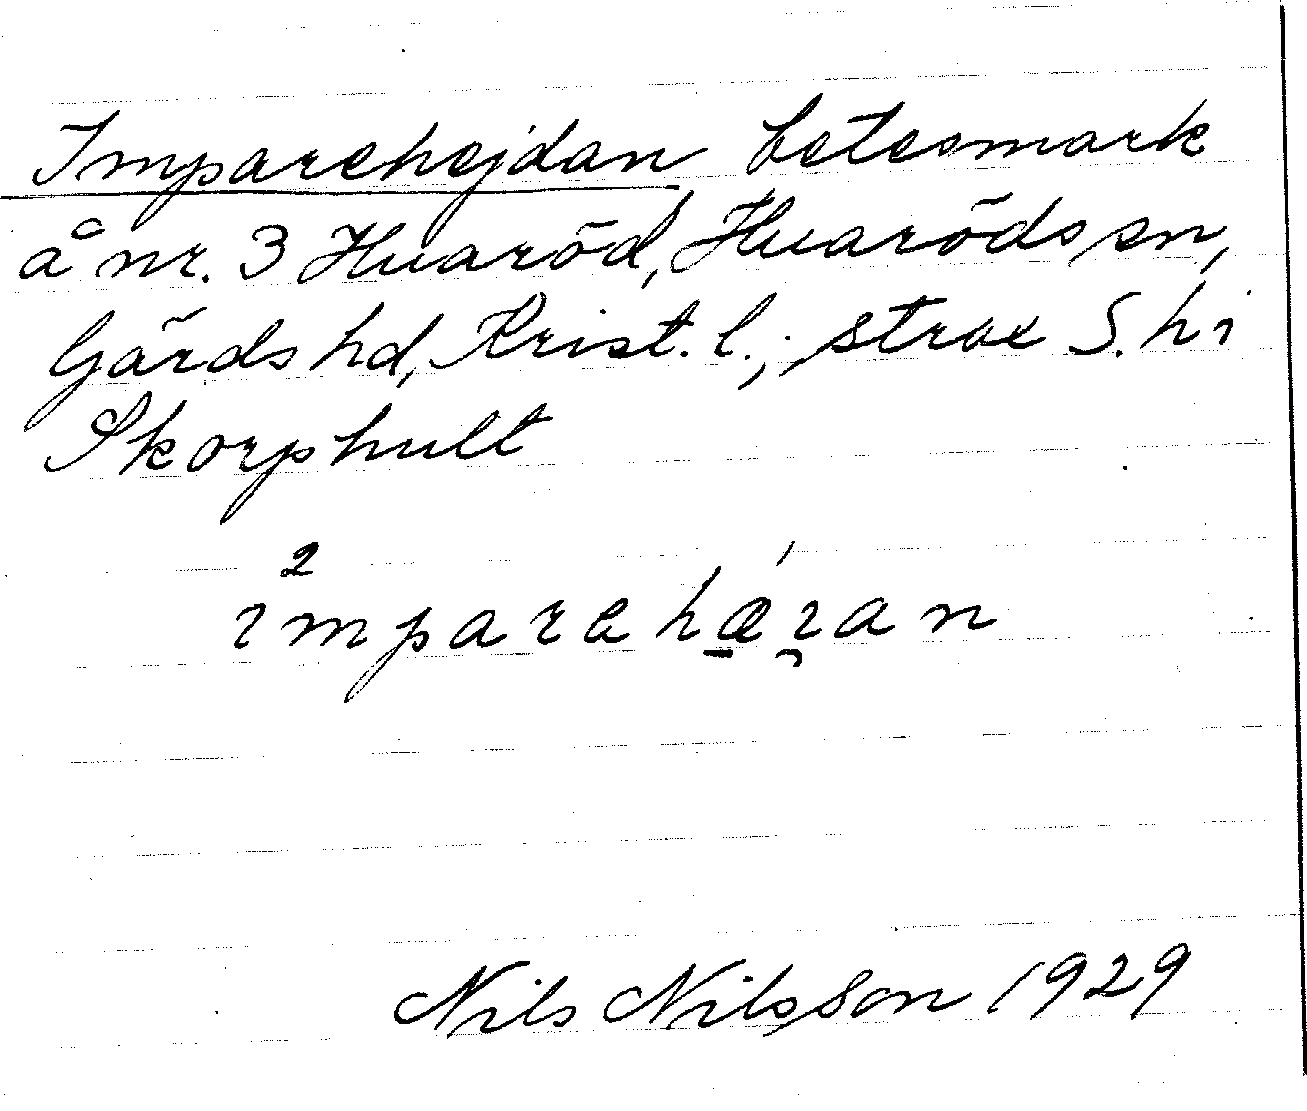 Imparehejdan betesmark
å nr. 3 Huaröd, Huaröds sn,
Gärds hd, Krist. l.; strax S. h i
Skorphult
2 ı
ımparahæ̱ı̯an
Nils Nilsson 1929